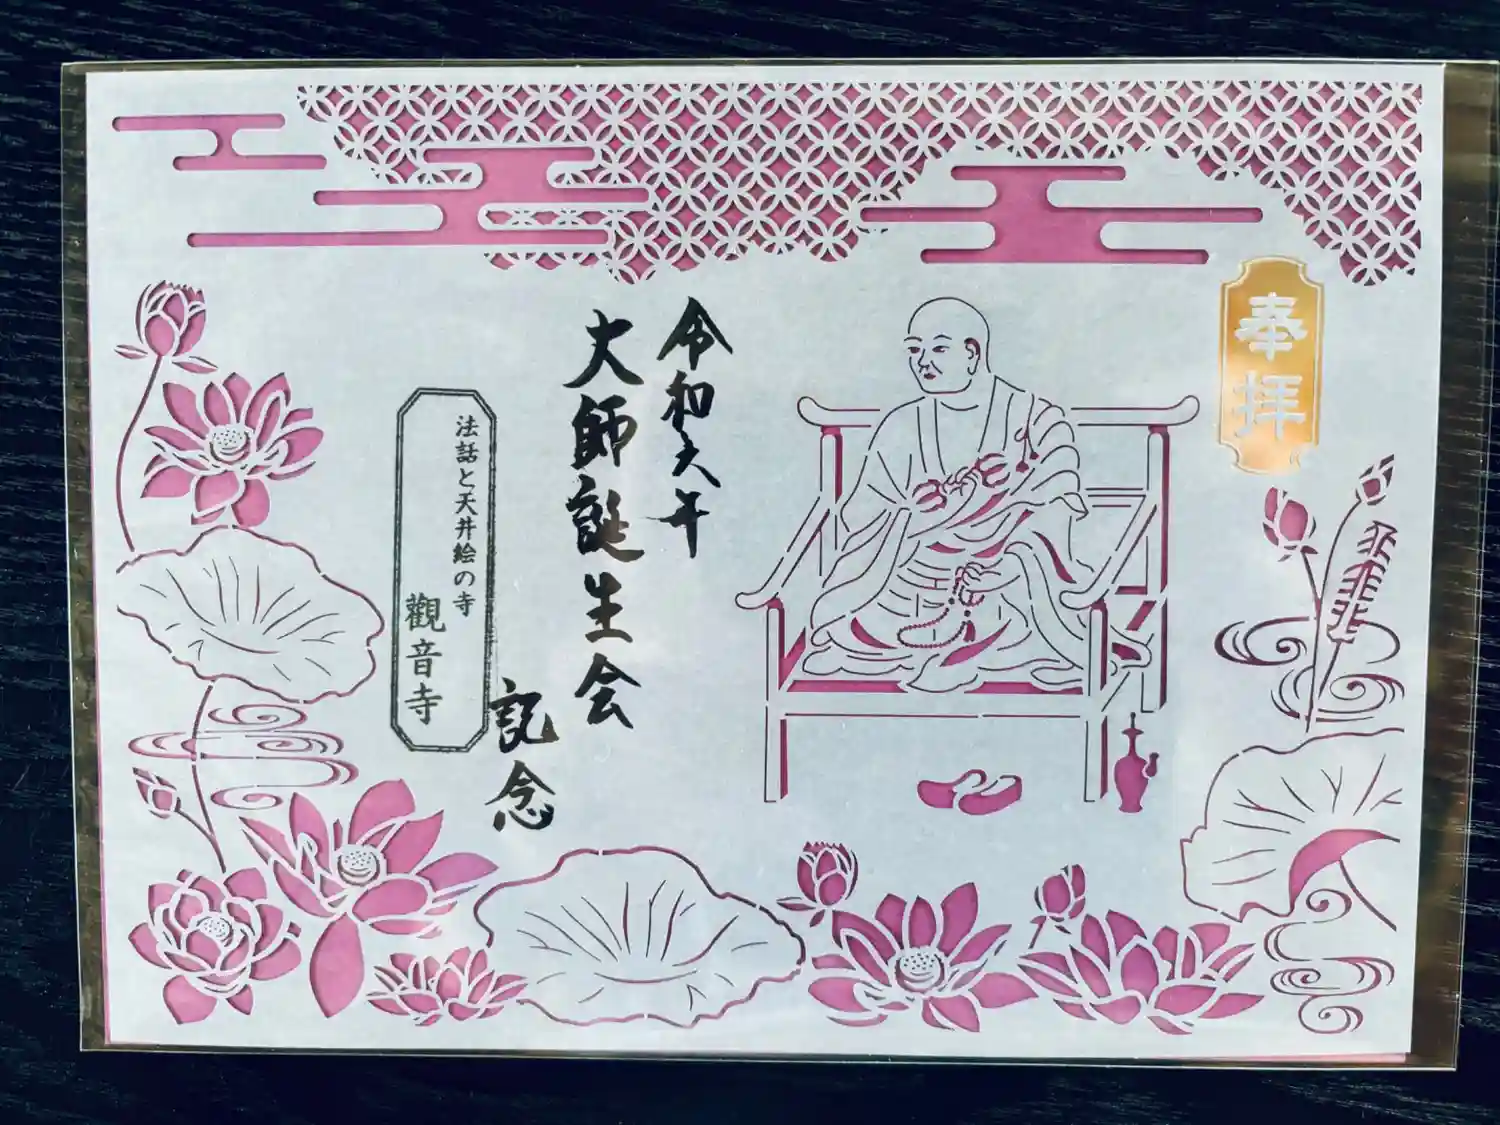 奉拝
令和六年
大師誕生会
記念
法話と天井絵の寺
觀音寺